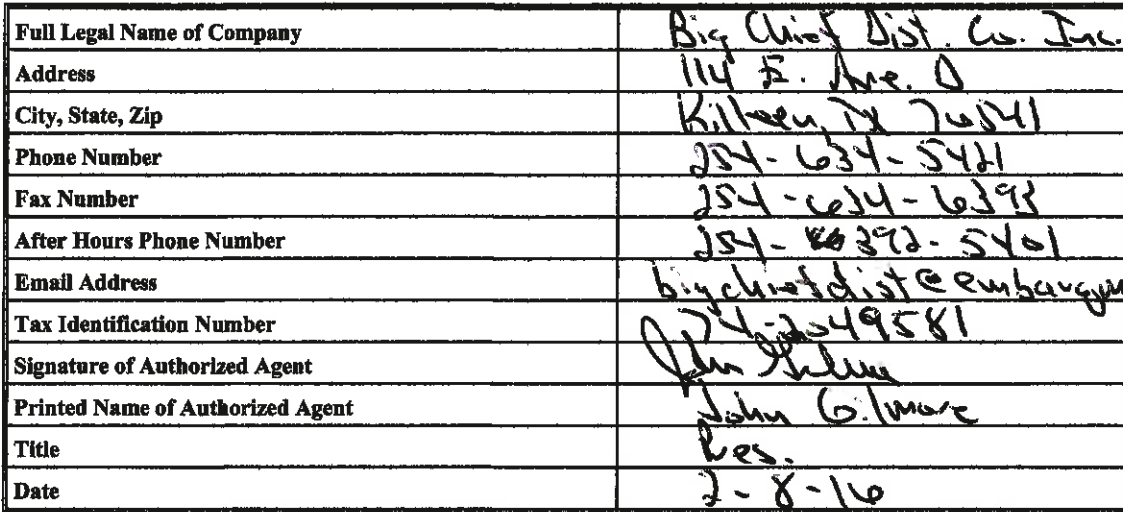 Full Legal Name of Company Big Chief Dist. Co. Inc.
Address 114 E. Ave. D
City, State, Zip Killeen, TX 76541
Phone Number 254-634-5421
Fax Number 254-634-6393
After Hours Phone Number 254-392-5401
Email Address bigchiefdist@embarqm
Tax Identification Number 74-2049581
Signature of Authorized Agent John Gilmore
Printed Name of Authorized Agent John Gilmore
Title Pres.
Date 2-8-16